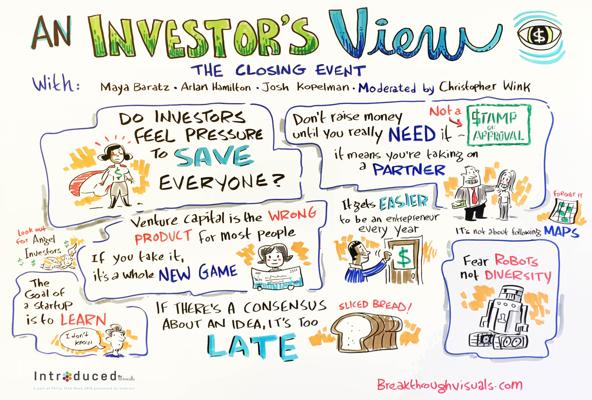 AN INVESTOR'S View
$
THE CLOSING EVENT
With: Maya Baratz • Arlan Hamilton • Josh Kopelman • Moderated by Christopher Wink
DO INVESTORS
FEEL PRESSURE
to SAVE
EVERYONE?
$
Don't raise money
until you really NEED it -
it means you're taking on
a PARTNER
Not a
$TAMP
OF
APPROVAL
Venture capital is the WRONG
PRODUCT for most people
If you take it,
it's a whole NEW GAME
It gets EASIER
to be an entrepreneur
every year
$
FORGET IT
It's not about following MAPS
Look out
for Angel
Investors
The
Goal of
a startup
is to LEARN
I don't
know!
IF THERE'S A CONSENSUS
ABOUT AN IDEA, IT'S TOO
LATE
SLICED BREAD!
Fear ROBOTS
not DIVERSITY
Introduced
Breakthroughvisuals.com